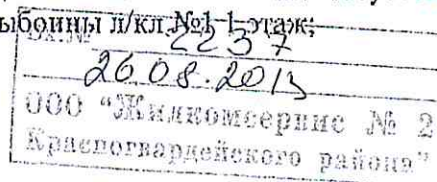 ыбоины л/кл №1-1 этаж;
Вх.№ 2237
26 08. 2013
ООО "Жилкомсервис № 2
Красногвардейского района"